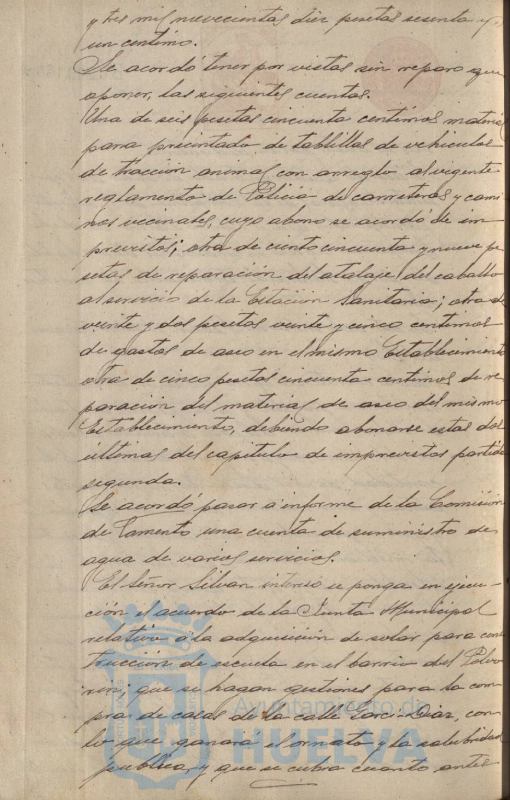 y tres mil novecientas diez pesetas sesenta y
un centimo.
Se acordó tener por vistas sin reparo que
oponer, las siguientes cuentas.
Una de seis pesetas cincuenta centimos material
para precintado de tablillas de vehiculos
de traccion animal con arreglo al vigente
reglamento de Policia de carreteras y cami
nos vecinales, cuyo abono se acordó de im
previstos; otra de ciento cincuenta y nueve pe
setas de reparación del atalaje del caballo
al servicio de la Estación Sanitaria; otra de
veinte y dos pesetas veinte y cinco centimos
de gastos de aseo en el mismo Establecimiento
otra de cinco pesetas cincuenta centimos de re
paración del material de aseo del mismo
Establecimiento, debiendo abonarse estas dos
últimas del capitulo de imprevistos partida
segunda.
Se acordó pasar a informe de la Comisión
de Fomento una cuenta de suministro de
agua de varios servicios.
El Señor Silvan interesó se ponga en ejecu-
ción el acuerdo de la Junta Municipal
relativo a la adquisición de solar para cons
trucción de escuela en el barrio del Polvo
rin; que se hagan gestiones para la com
pra de casas de la calle Garci-Diaz, con
lo que ganará el ornato y la salubridad
publica, y que se cubra cuanto antes
Ayuntamiento de
HUELVA